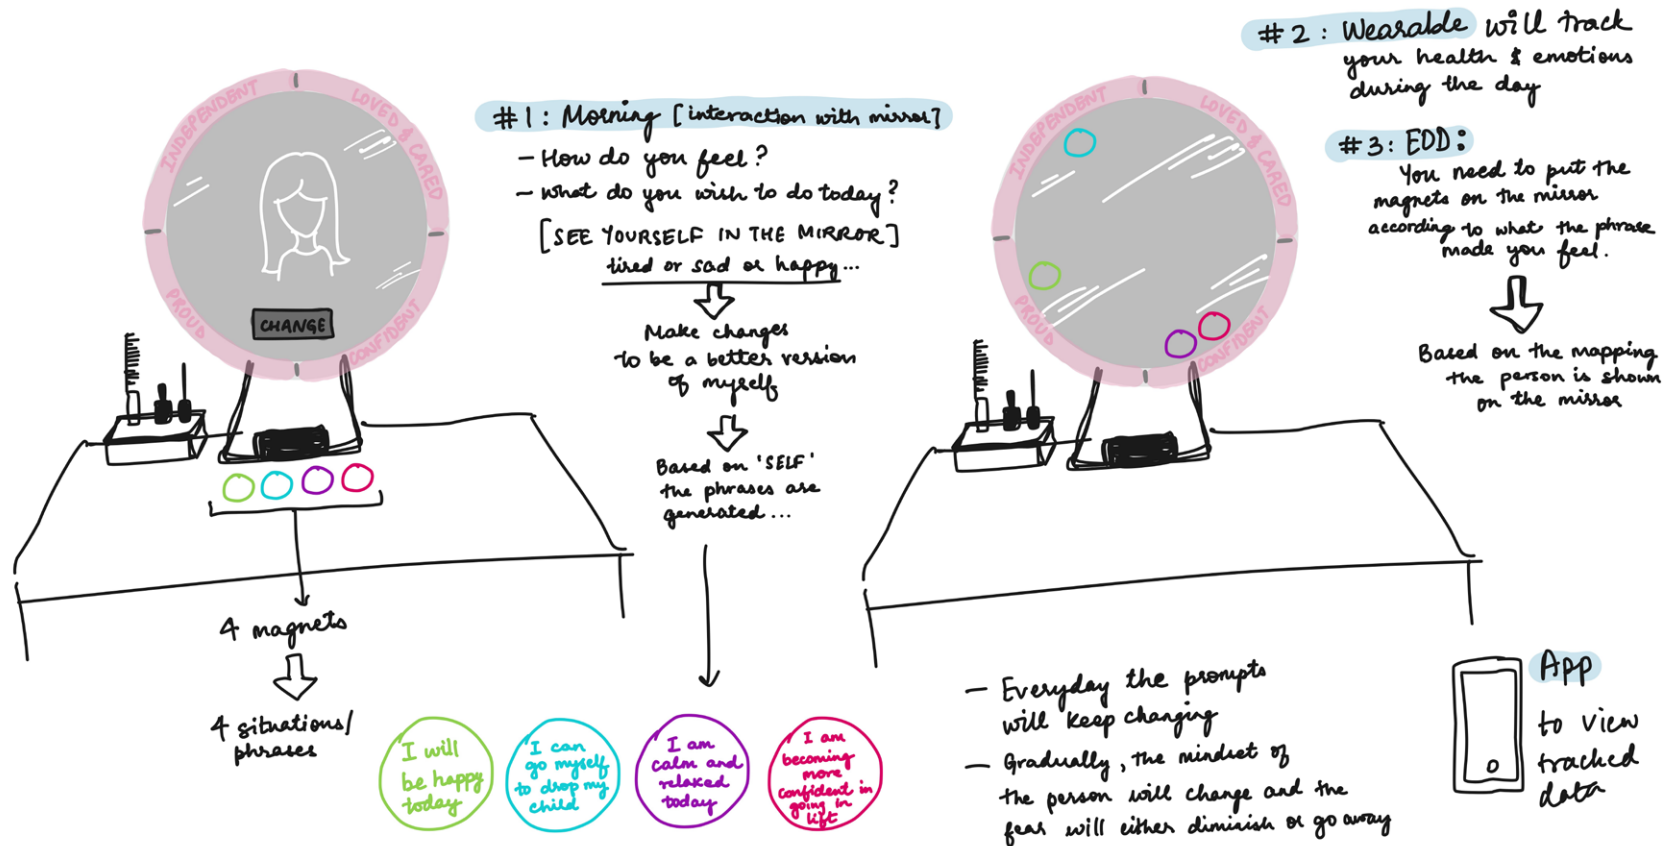 INDEPENDENT
LOVED & CARED
PROUD
CONFIDENT
CHANGE
4 magnets
4 situations/
phrases
#1: Morning [interaction with mirror]
- How do you feel?
- What do you wish to do today?
[SEE YOURSELF IN THE MIRROR]
tired or sad or happy...
Make changes
to be a better version
of myself
Based on 'SELF'
the phrases are
generated...
I will
be happy
today
I can
go myself
to drop my
child
I am
calm and
relaxed
today
I am
becoming
more
confident in
going in
lift
INDEPENDENT
LOVED & CARED
PROUD
CONFIDENT
#2: Wearable will track
your health & emotions
during the day
#3: EOD:
You need to put the
magnets on the mirror
according to what the phrase
made you feel.
Based on the mapping
the person is shown
on the mirror
- Everyday the prompts
will keep changing
- Gradually, the mindset of
the person will change and the
fear will either diminish or go away
App
to view
tracked
data